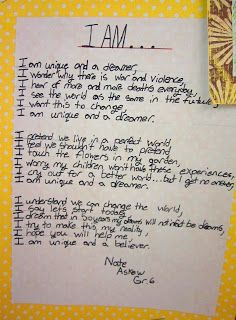 I AM...
I am unique and a dreamer,
I wonder why there is war and violence,
I hear of more and more deaths everyday,
I see the world as the same in the future,
I want this to change,
I am unique and a dreamer.
I pretend we live in a perfect world,
I feel we shouldn't have to pretend
I touch the flowers in my garden,
I worry my children wont have these experiences,
I cry out for a better world...but I get no answer,
I am unique and a dreamer.
I understand we can change the world,
I say lets start today,
I dream that in years my dreams will not be dreams,
I try to make this my reality,
I hope you will help me,
I am unique and a believer.
Nate
Gr.6